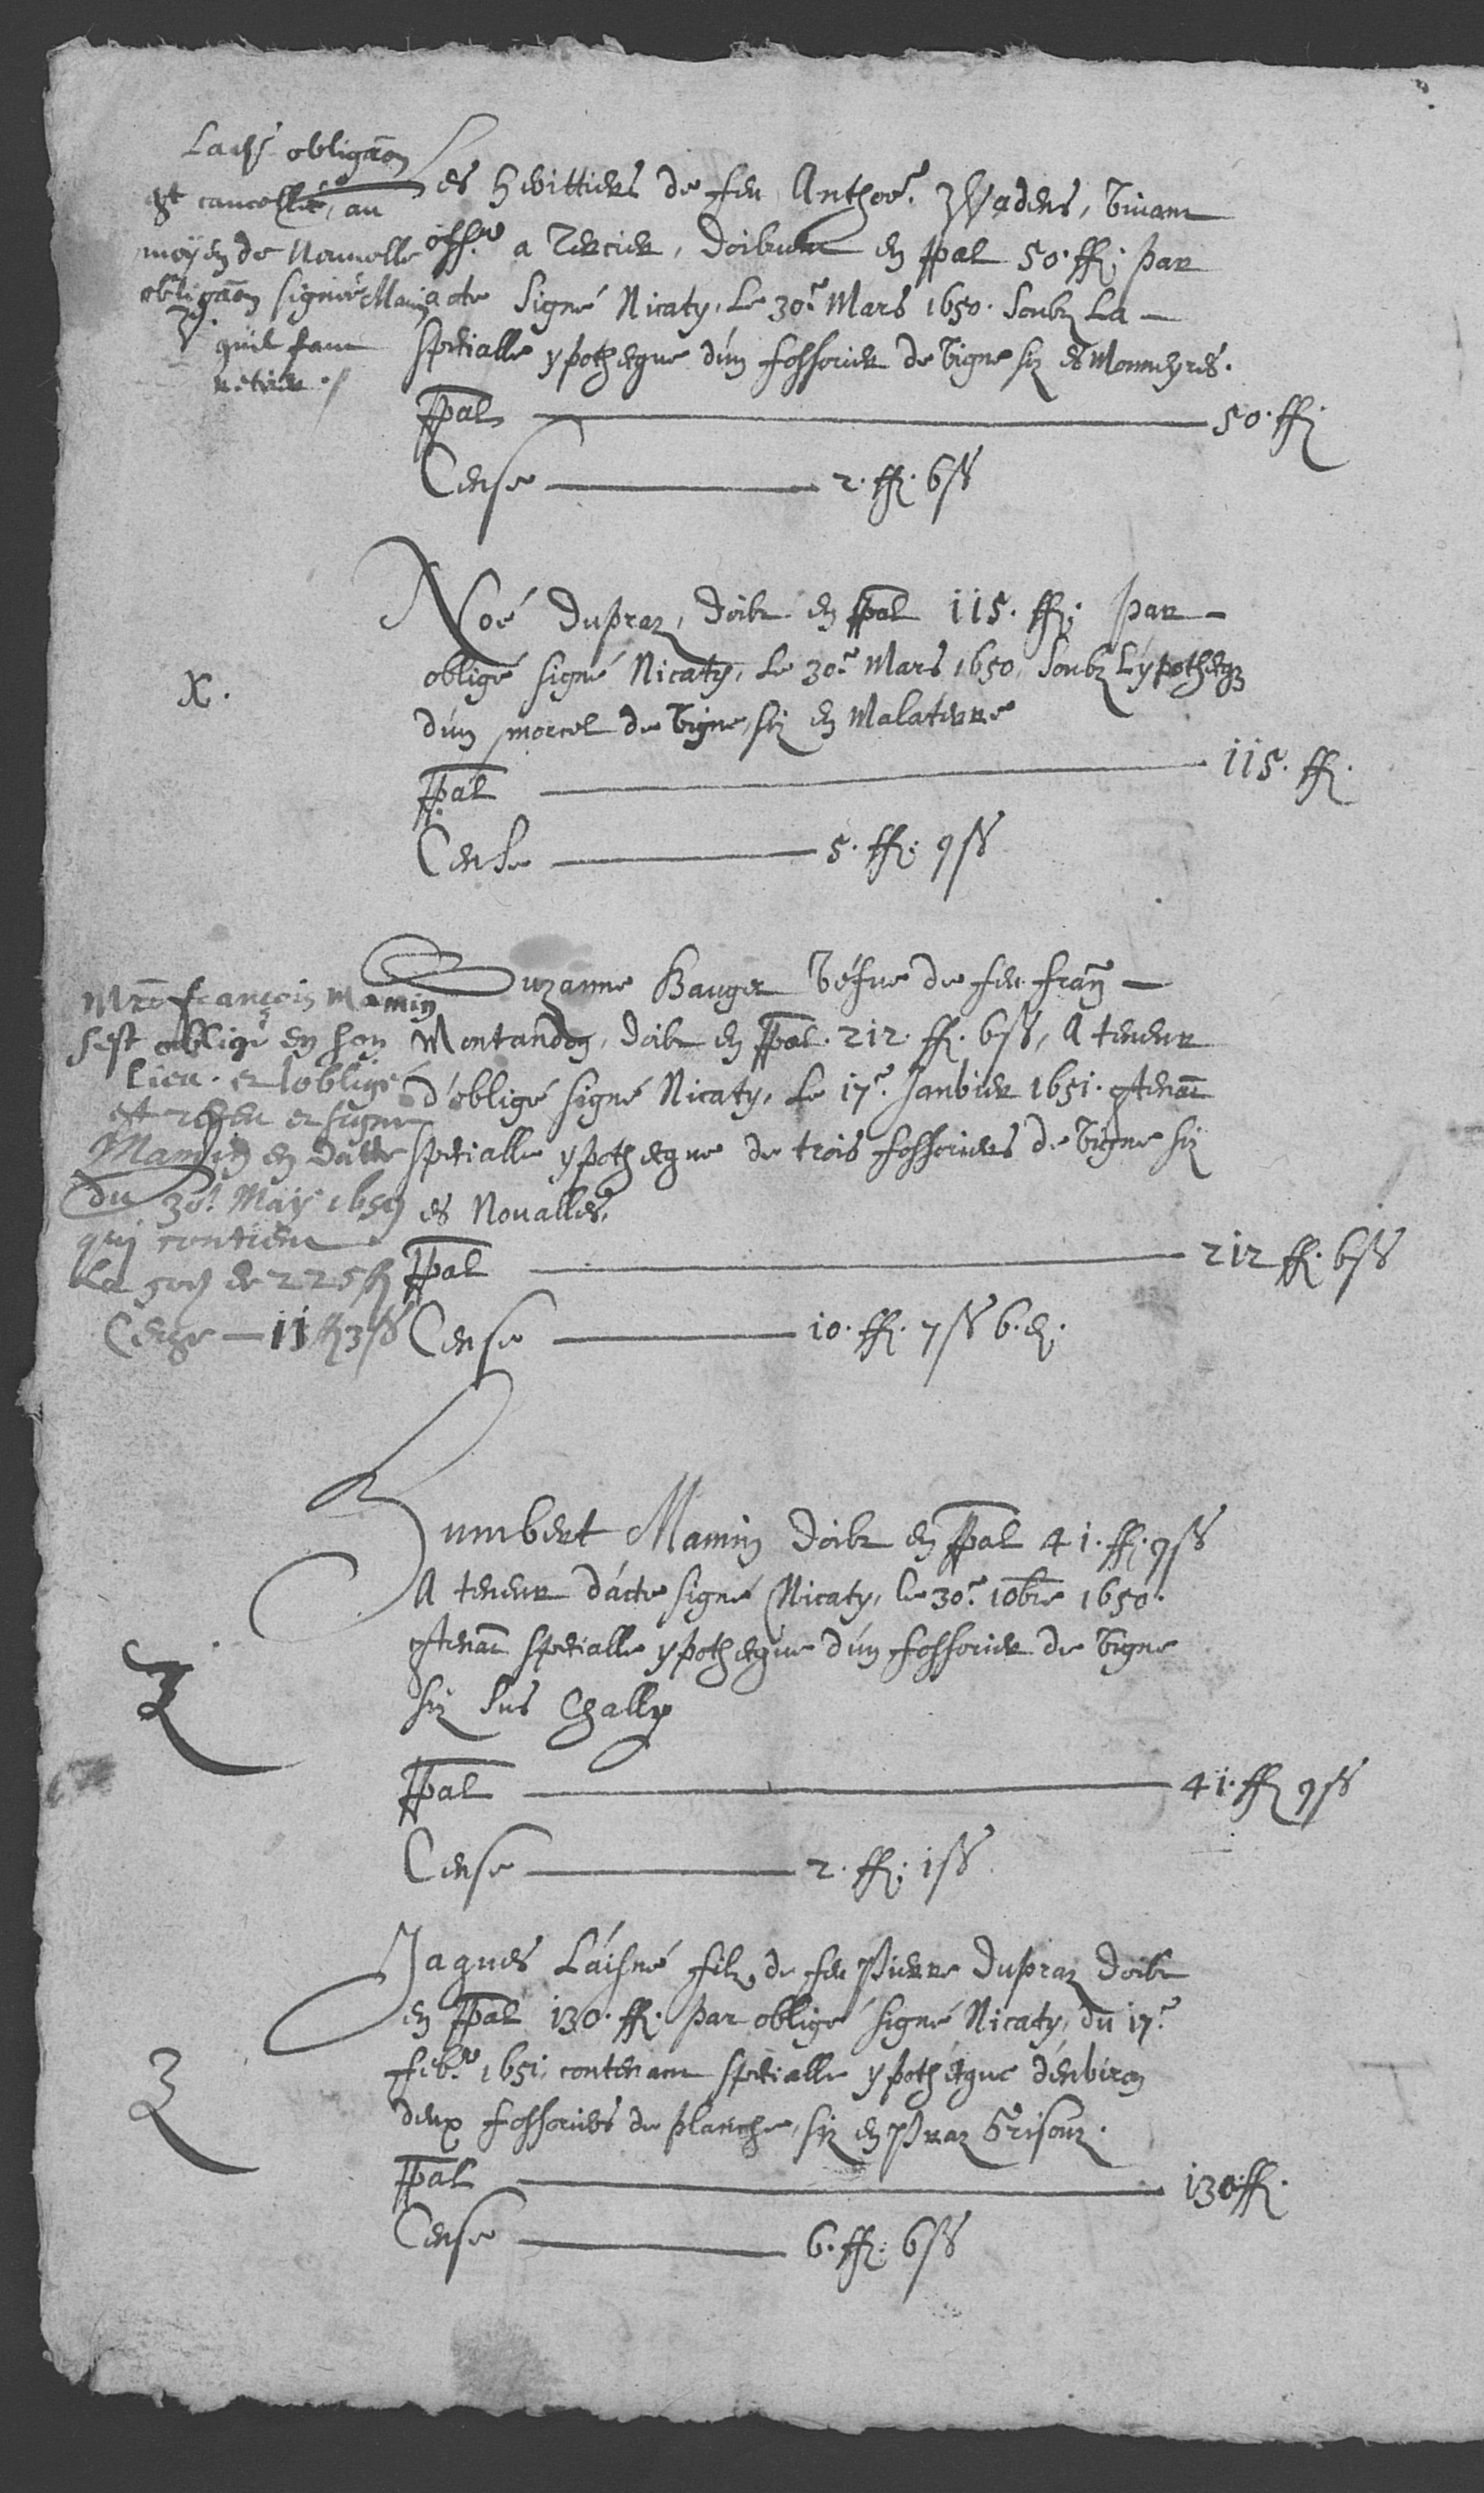 Lad.e obligãon
est cancellée, au
moÿen de Nouvelle
obligãon signée Mamin
quil faut
retirer ./
Les heritiers de feu Antho.e Wadens, vivant
off.r a Tercier, doibvent en ppal 50. ff. par
acte signé Nicaty, Le 30.e Mars 1650. soubz La
spetialle ypotheque dún fossorier de vigne siz és Monneyres.
ppal 50. ff.
Cense 2. ff. 6 ss
X.
Noé dupraz, doibt en ppal 115. ff. par
obligé signé Nicaty, Le 30.e Mars 1650, soubz Lýpotheq3
dún morcel de vigne, siz en Malaterre
ppal 115. ff.
Cense 5. ff. 9 ss
Mre françois Mamin
sest obligé en son
Lieu. et lobligé
est receu et signé
Mamin en datte
du 30.e Maÿ 1659
qui contient
La so.e de 225 ff
Cense 11 ff 3 ss
Suzanne Bauger véfve de feu fran
Montandon, doibt en ppal. 212. ff. 6 ss, A teneur
d'obligé signé Nicaty, Le 17.e Janvier 1651. 9tenãt
spetialle ypotheque de trois fossoriers de vigne siz
es Novalles.
ppal 212 ff. 6 ss
Cense 10. ff. 7 ss 6. d.
Humbert Mamin doibt en ppal 41. ff. 9 ss
A teneur dácte signé Nicaty, le 30.e 10bre 1650.
9tenãt spetialle ypotheque dún fossorier de vigne
siz sus Chally
ppal 41. ff 9 ss
Cense 2. ff. 1 ss
Jaques Láisné filz de feu Pierre dupraz doibt
en ppal 130. ff. par obligé signé Nicaty, du 17.e
feb.r 1651, contenant spetialle ypothéque dénviron
deux fossoriers de planche, siz en Praz Grisouz.
ppal 130 ff.
Cense 6. ff. 6 ss